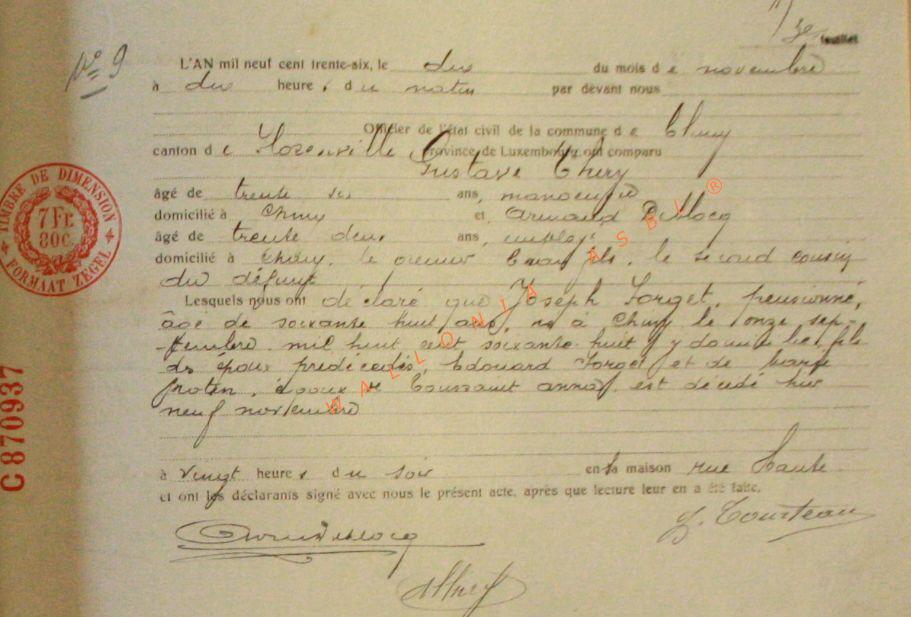 3e feuillet
N° 9
L'AN mil neuf cent trente-six, le dix du mois de novembre
à dix heures du matin par devant nous
Officier de l'état civil de la commune de Chiny
canton de Florenville Province de Luxembourg ont comparu
Gustave Thiry
âgé de trente six ans, manoeuvre
domicilié à Chiny et Armand Dellocq
âgé de trente deux ans, employé
domicilié à Chiny, le premier beau fils, le second cousin
du défunt
Lesquels nous ont déclaré que Joseph Forget, pensionné,
âgé de soixante huit ans, né à Chiny le onze sep-
tembre mil huit cent soixante huit y domicilié fils
des époux prédécédés, Edouard Forget et de
époux de Toussaint Anna, est décédé hier
neuf novembre
à vingt heures du soir en sa maison rue Haute
et ont les déclarants signé avec nous le présent acte, après que lecture leur en a été faite.
TIMBRE DE DIMENSION
7 Fr.
80c.
FORMAAT ZEGEL
C870937
WALLONIA ASBL ®